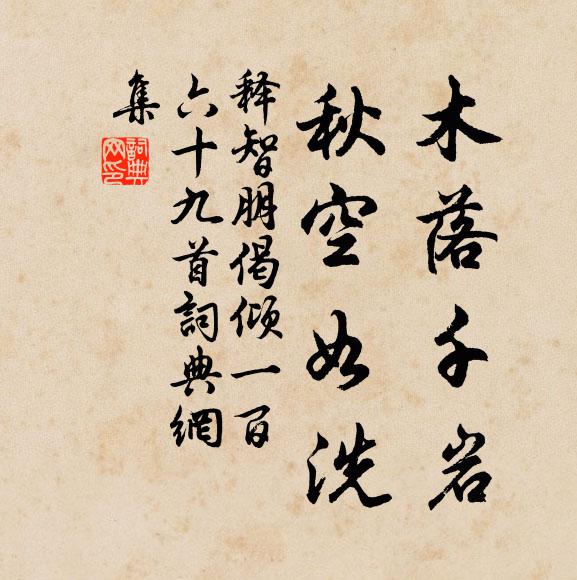 木落千岩
秋空如洗
释智朋偈倾一百
六十九首詞典網
集
詞典
网印